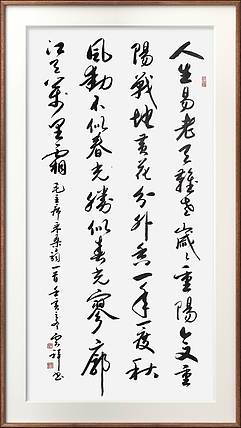 人生易老天難老歲〻重陽今又重
陽戰地黃花分外香一年一度秋
風勁不似春光勝似春光寥廓
江天萬里霜 毛主席采桑詞一首壬寅之冬雲祥書